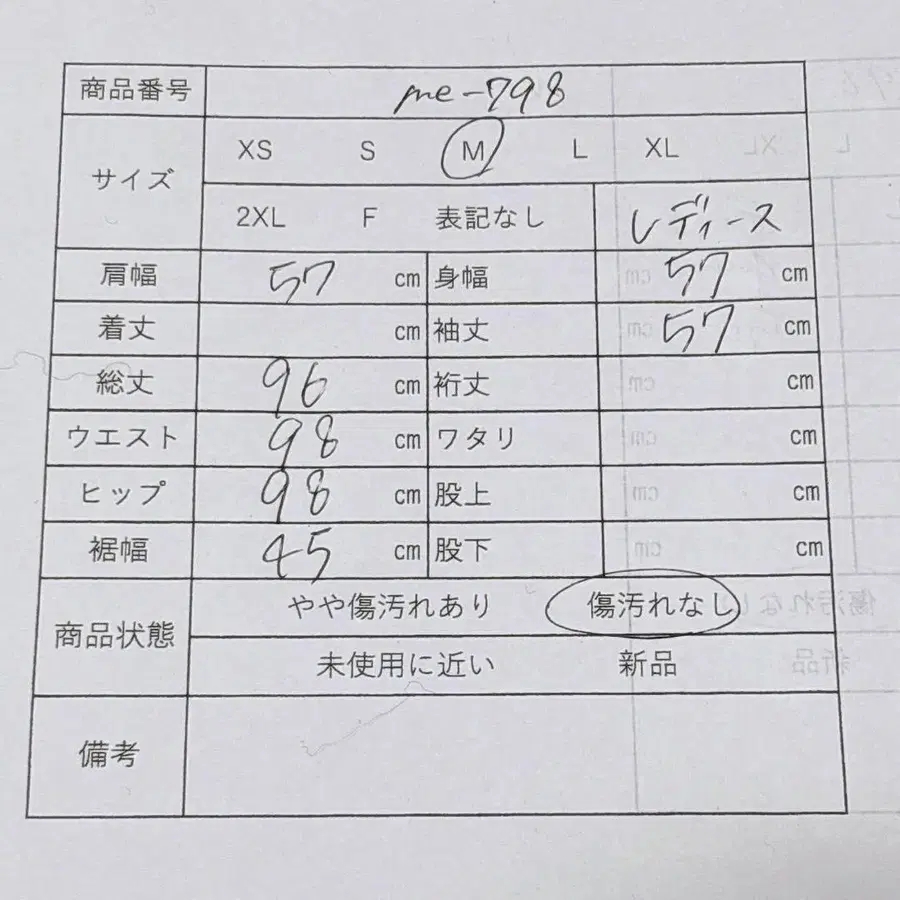 商品番号 me-798
サイズ XS S M L XL
2XL F 表記なし レディース
肩幅 57 cm 身幅 57 cm
着丈 cm 袖丈 57 cm
総丈 96 cm 裄丈 cm
ウエスト 98 cm ワタリ cm
ヒップ 98 cm 股上 cm
裾幅 45 cm 股下 cm
商品状態 やや傷汚れあり 傷汚れなし
未使用に近い 新品
備考